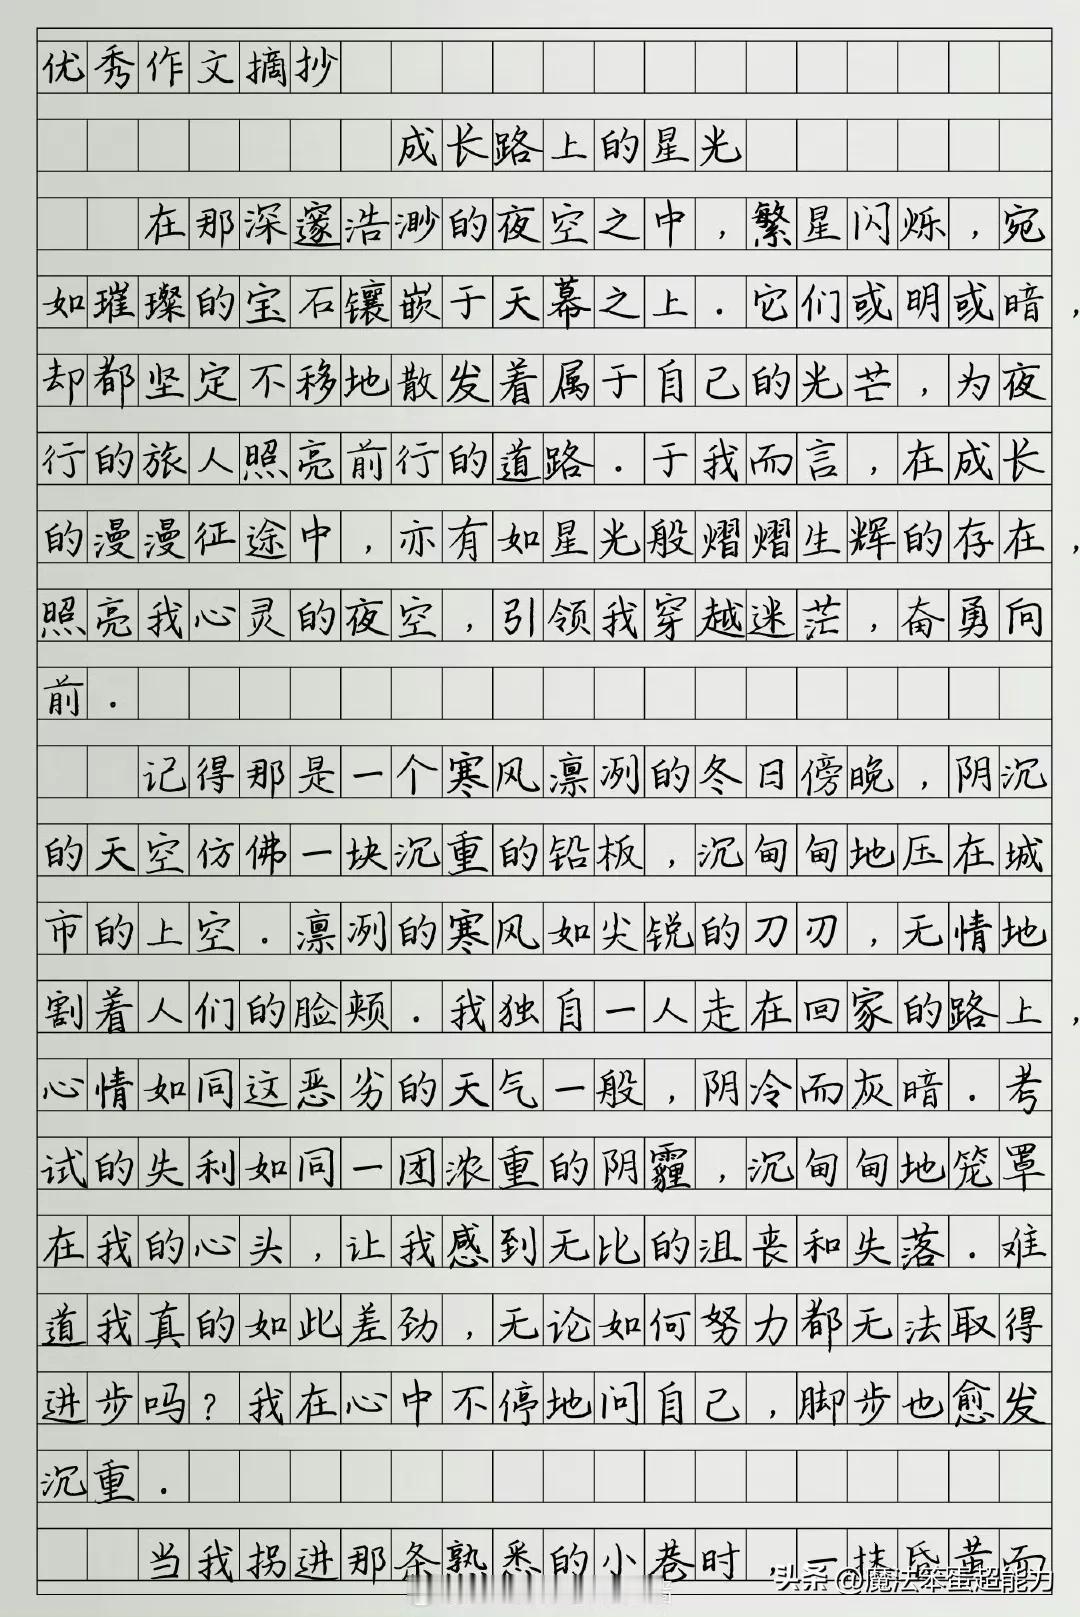 优秀作文摘抄
成长路上的星光
在那深邃浩渺的夜空之中，繁星闪烁，宛
如璀璨的宝石镶嵌于天幕之上．它们或明或暗，
却都坚定不移地散发着属于自己的光芒，为夜
行的旅人照亮前行的道路．于我而言，在成长
的漫漫征途中，亦有如星光般熠熠生辉的存在，
照亮我心灵的夜空，引领我穿越迷茫，奋勇向
前．
记得那是一个寒风凛冽的冬日傍晚，阴沉
的天空仿佛一块沉重的铅板，沉甸甸地压在城
市的上空．凛冽的寒风如尖锐的刀刃，无情地
割着人们的脸颊．我独自一人走在回家的路上，
心情如同这恶劣的天气一般，阴冷而灰暗．考
试的失利如同一团浓重的阴霾，沉甸甸地笼罩
在我的心头，让我感到无比的沮丧和失落．难
道我真的如此差劲，无论如何努力都无法取得
进步吗？我在心中不停地问自己，脚步也愈发
沉重．
当我拐进那条熟悉的小巷时，一抹昏黄而
头条 @魔法笨蛋超能力